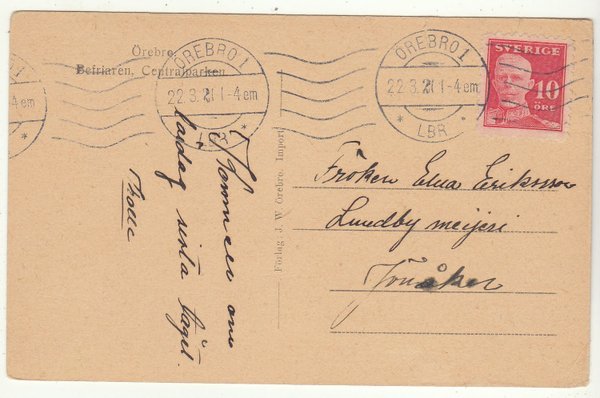 Örebro.
Befriaren, Centralparken
ÖREBRO 1
22.3.21 1-4 em
LBR
ÖREBRO 1
22.3.21 1-4 em
LBR
1
4 em
SVERIGE
10
ÖRE
Kommer om
lördag sista tåget.
Förlag. J. W. Örebro. Import
Fröken Elna Eriksson
Lundby mejeri
Jonåker